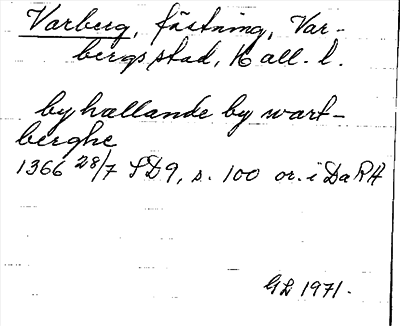 Varberg, fästning, Var-
bergs stad, Hall. l.
by hallande by wart-
berghe
1366 28/7 SD9, s. 100 or. i DaRA
GL 1971.